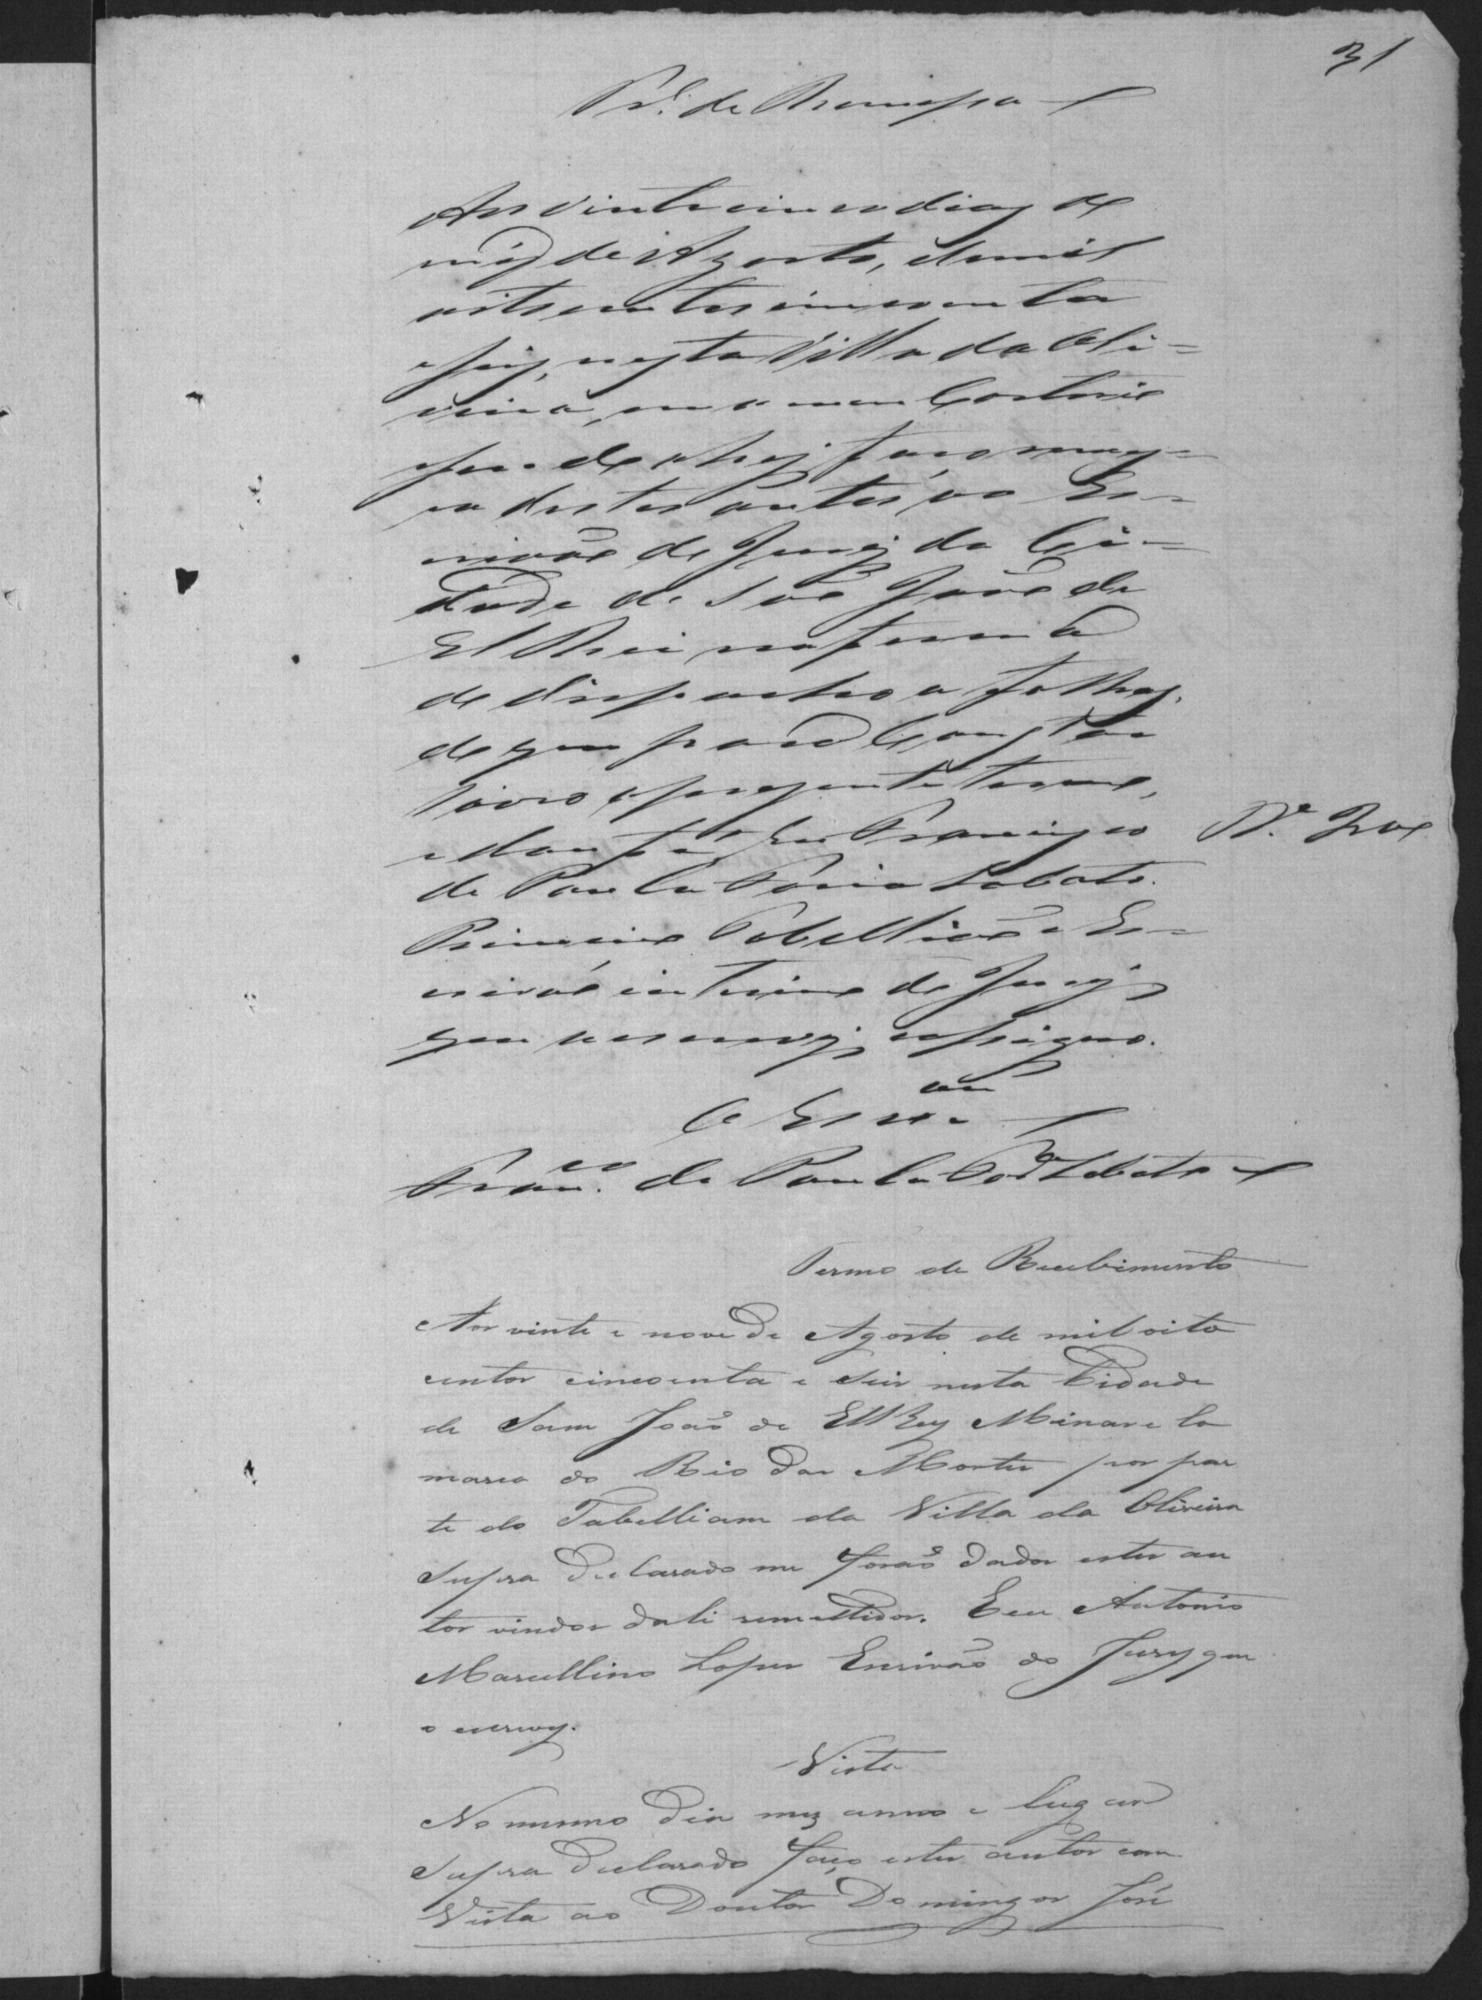 31
de Remessa
Aos vinte cinco dias do
mez de Agosto, de mil
oito centos cincoenta
e seis, nesta Villa da Oli=
veira, em o meu Cartorio
sendo ahi faço remes=
sa destes autos ao Es=
crivão do Jury da Ci=
dade de São João de
El Rei na forma
do despacho a folhas.
do que para Constar
lavro o presente termo,
e dou fé. Eu Francisco
de Paula Faria Lobato.
Primeiro Tabellião e Es=
crivão interino do Jury
que o escrevi, e assigno.
O Escr.am
Fran.co de Paula Faria Lobato
Termo de Recebimento
Aos vinte e nove de Agosto de mil oito
centos cincoenta e seis nesta Cidade
de Sam João de ElRey Minas e Co
marca do Rio das Mortes por par
te do Tabelliam da Villa da Oliveira
supra declarado me forão dados estes au
tos vindos dali remettidos. Eeu Antonio
Marcellino Lopes Escrivão do Jury que
o escrevy.
Vista
No mesmo dia mez anno e lugar
supra declarado faço estes autos com
Vista ao Doutor Domingos José